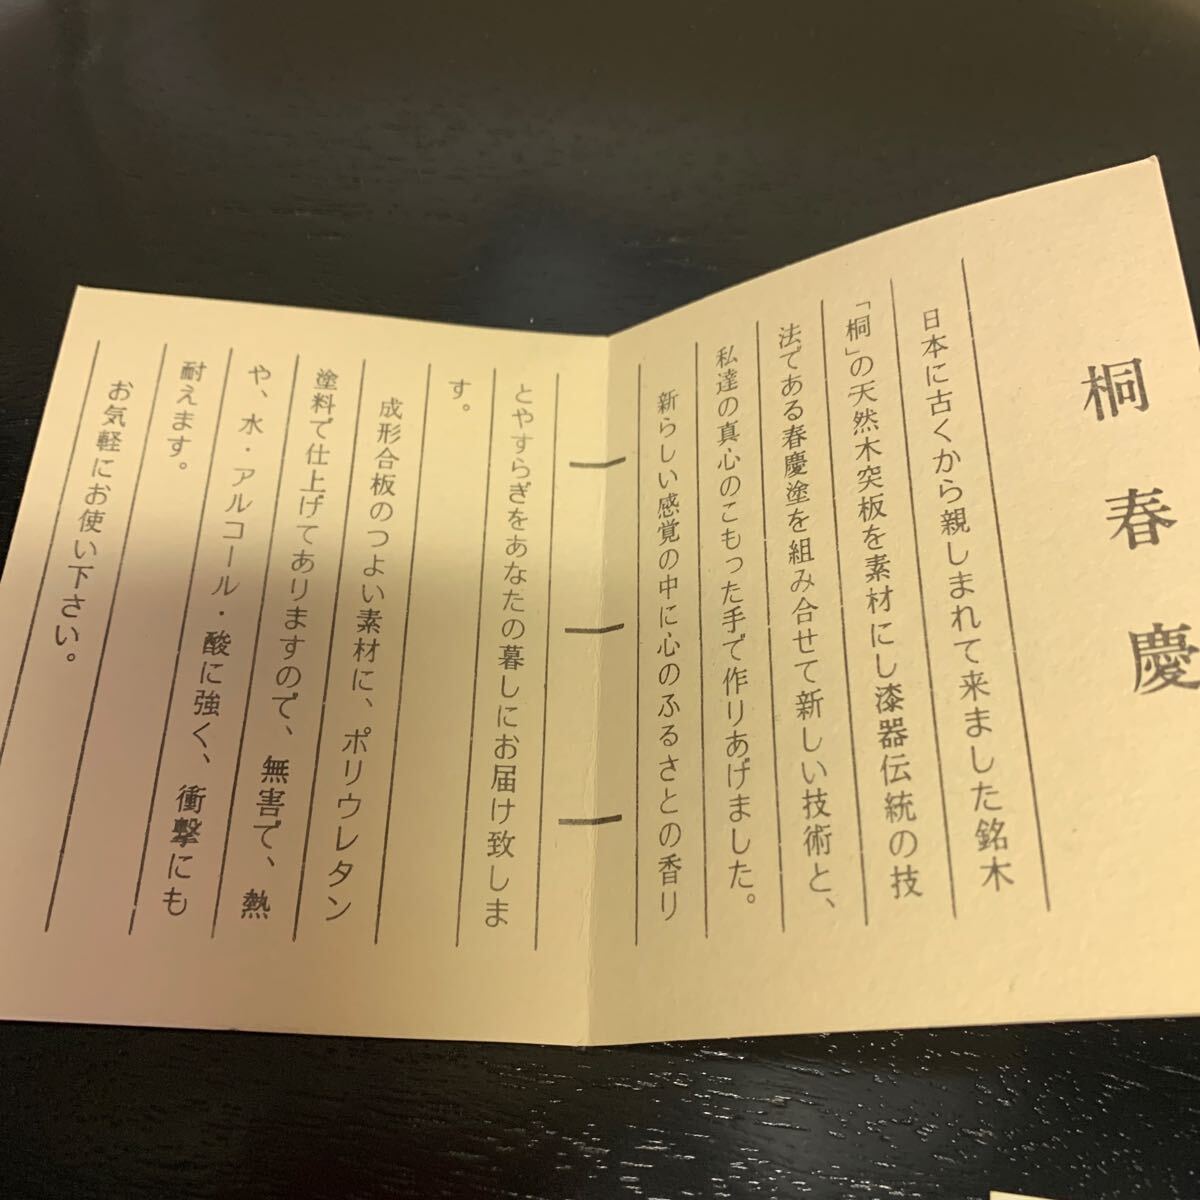 桐春慶
日本に古くから親しまれて来ました銘木
「桐」の天然木突板を素材にし漆器伝統の技
法である春慶塗を組み合せて新しい技術と、
私達の真心のこもった手で作りあげました。
新らしい感覚の中に心のふるさとの香り
とやすらぎをあなたの暮しにお届け致しま
す。
成形合板のつよい素材に、ポリウレタン
塗料で仕上げてありますので、無害で、熱
や、水・アルコール・酸に強く、衝撃にも
耐えます。
お気軽にお使い下さい。